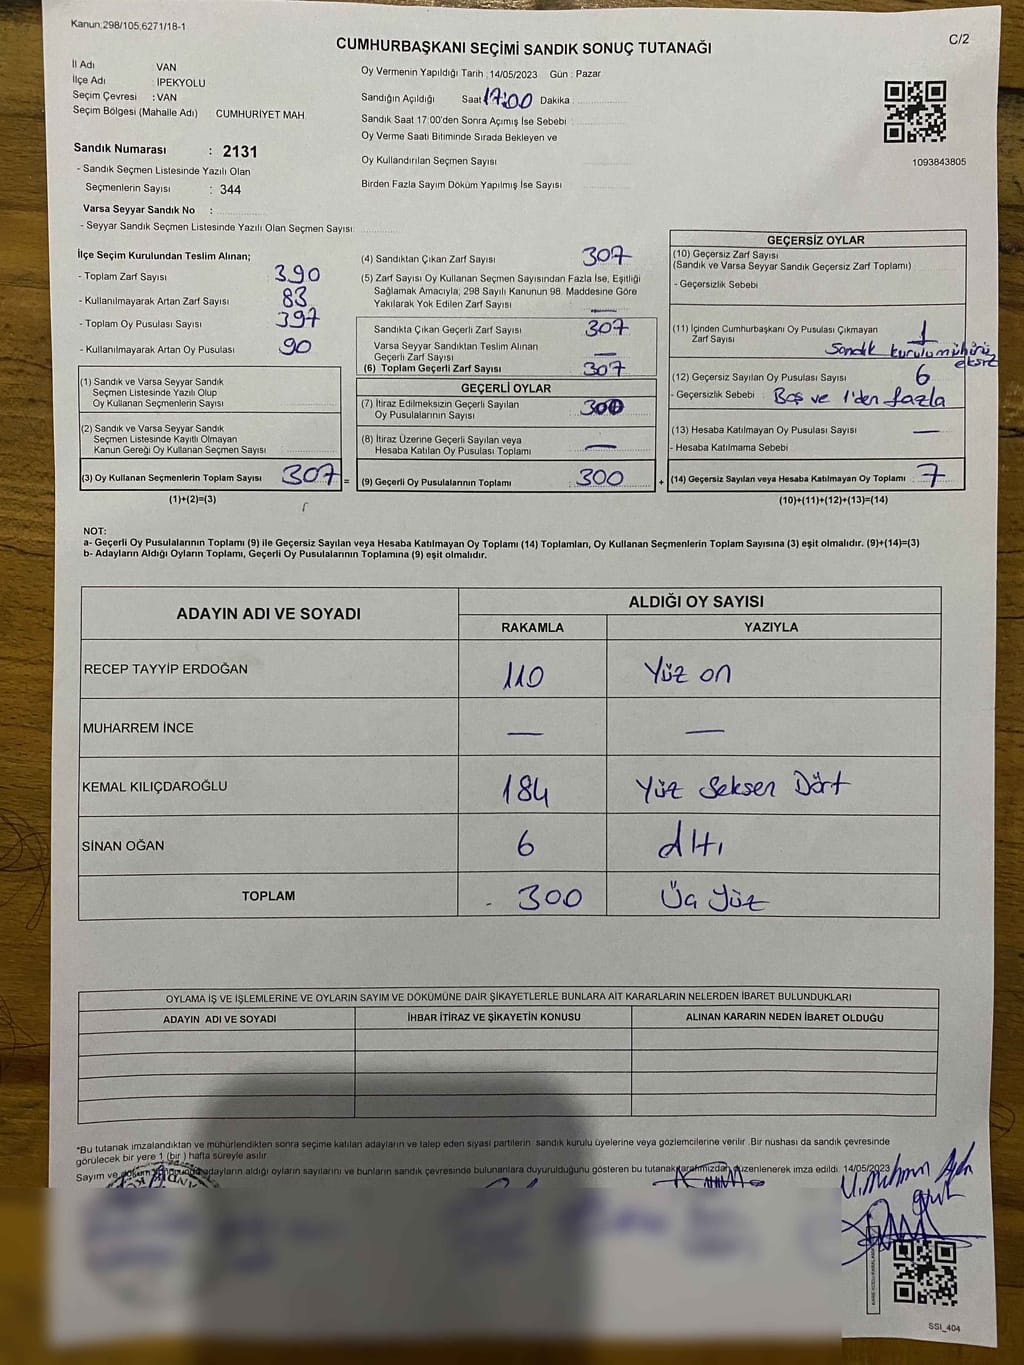 Kanun:298/105;6271/18-1
C/2
CUMHURBAŞKANI SEÇİMİ SANDIK SONUÇ TUTANAĞI
İl Adı VAN
İlçe Adı : İPEKYOLU
Seçim Çevresi : VAN
Seçim Bölgesi (Mahalle Adı) CUMHURİYET MAH.
Sandık Numarası : 2131
- Sandık Seçmen Listesinde Yazılı Olan
Seçmenlerin Sayısı : 344
Varsa Seyyar Sandık No :
- Seyyar Sandık Seçmen Listesinde Yazılı Olan Seçmen Sayısı:
Oy Vermenin Yapıldığı Tarih : 14/05/2023 Gün : Pazar
Sandığın Açıldığı Saat 17:00 Dakika :
Sandık Saat 17:00'den Sonra Açımış İse Sebebi :
Oy Verme Saati Bitiminde Sırada Bekleyen ve
Oy Kullandırılan Seçmen Sayısı
Birden Fazla Sayım Döküm Yapılmış İse Sayısı
1093843805
İlçe Seçim Kurulundan Teslim Alınan;
- Toplam Zarf Sayısı 390
- Kullanılmayarak Artan Zarf Sayısı 83
- Toplam Oy Pusulası Sayısı 397
- Kullanılmayarak Artan Oy Pusulası 90
(1) Sandık ve Varsa Seyyar Sandık
Seçmen Listesinde Yazılı Olup
Oy Kullanan Seçmenlerin Sayısı
(2) Sandık ve Varsa Seyyar Sandık
Seçmen Listesinde Kayıtlı Olmayan
Kanun Gereği Oy Kullanan Seçmen Sayısı
(3) Oy Kullanan Seçmenlerin Toplam Sayısı 307 =
(1)+(2)=(3)
(4) Sandıktan Çıkan Zarf Sayısı 307
(5) Zarf Sayısı Oy Kullanan Seçmen Sayısından Fazla İse, Eşitliği
Sağlamak Amacıyla; 298 Sayılı Kanunun 98. Maddesine Göre
Yakılarak Yok Edilen Zarf Sayısı —
Sandıkta Çıkan Geçerli Zarf Sayısı 307
Varsa Seyyar Sandıktan Teslim Alınan
Geçerli Zarf Sayısı —
(6) Toplam Geçerli Zarf Sayısı 307
GEÇERLİ OYLAR
(7) İtiraz Edilmeksizin Geçerli Sayılan
Oy Pusulalarının Sayısı 300
(8) İtiraz Üzerine Geçerli Sayılan veya
Hesaba Katılan Oy Pusulası Toplamı —
(9) Geçerli Oy Pusulalarının Toplamı : 300 +
GEÇERSİZ OYLAR
(10) Geçersiz Zarf Sayısı
(Sandık ve Varsa Seyyar Sandık Geçersiz Zarf Toplamı)
- Geçersizlik Sebebi
(11) İçinden Cumhurbaşkanı Oy Pusulası Çıkmayan
Zarf Sayısı 1
Sandık kurulu mührü
eksik
(12) Geçersiz Sayılan Oy Pusulası Sayısı 6
- Geçersizlik Sebebi : Boş ve 1'den fazla
(13) Hesaba Katılmayan Oy Pusulası Sayısı —
- Hesaba Katılmama Sebebi
(14) Geçersiz Sayılan veya Hesaba Katılmayan Oy Toplamı 7
(10)+(11)+(12)+(13)=(14)
NOT:
a- Geçerli Oy Pusulalarının Toplamı (9) ile Geçersiz Sayılan veya Hesaba Katılmayan Oy Toplamı (14) Toplamları, Oy Kullanan Seçmenlerin Toplam Sayısına (3) eşit olmalıdır. (9)+(14)=(3)
b- Adayların Aldığı Oyların Toplamı, Geçerli Oy Pusulalarının Toplamına (9) eşit olmalıdır.
ADAYIN ADI VE SOYADI ALDIĞI OY SAYISI
RAKAMLA YAZIYLA
RECEP TAYYİP ERDOĞAN 110 Yüz on
MUHARREM İNCE — —
KEMAL KILIÇDAROĞLU 184 Yüz Seksen Dört
SİNAN OĞAN 6 altı
TOPLAM 300 Üç Yüz
OYLAMA İŞ VE İŞLEMLERİNE VE OYLARIN SAYIM VE DÖKÜMÜNE DAİR ŞİKAYETLERLE BUNLARA AİT KARARLARIN NELERDEN İBARET BULUNDUKLARI
ADAYIN ADI VE SOYADI İHBAR İTİRAZ VE ŞİKAYETİN KONUSU ALINAN KARARIN NEDEN İBARET OLDUĞU
*Bu tutanak imzalandıktan ve mühürlendikten sonra seçime katılan adayların ve talep eden siyasi partilerin sandık kurulu üyelerine veya gözlemcilerine verilir .Bir nüshası da sandık çevresinde
görülecek bir yere 1 (bir ) hafta süreyle asılır
Sayım ve adayların aldığı oyların sayılarını ve bunların sandık çevresinde bulunanlara duyurulduğunu gösteren bu tutanak tarafımızdan düzenlenerek imza edildi. 14/05/2023
SSI_404